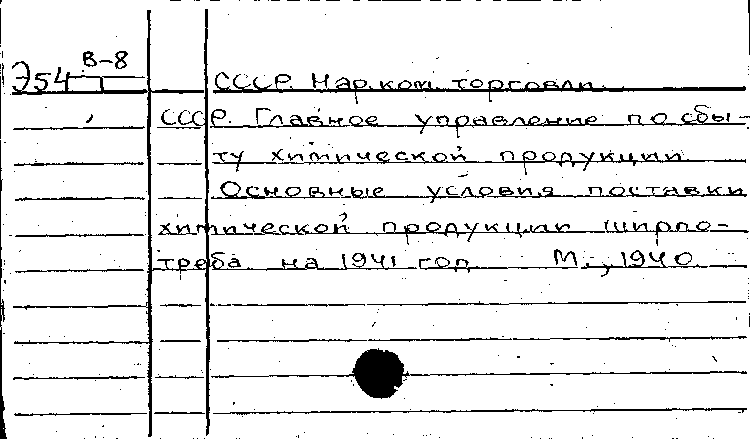 В-8
Э54 СССР. Нар.ком. торговли.
СССР. Главное управление по сбы-
ту химической продукции
Основные условия поставки
химической продукции ширпо-
треба на 1941 год М., 1940.